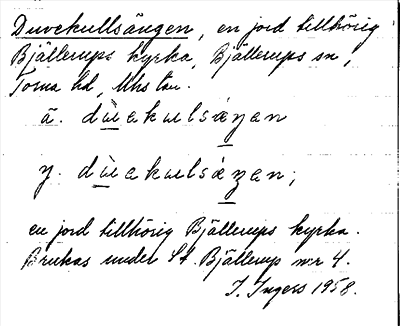 Duvekullsängen, en jord tillhörig
Bjällerups kyrka, Bjällerups sn,
Torna hd, Mhs län.
ä. dùekulsáʒan
y. dùekulsáʒan;
en jord tillhörig Bjällerups kyrka.
Brukas under St. Bjällerup nr 4.
I. Ingers 1958.